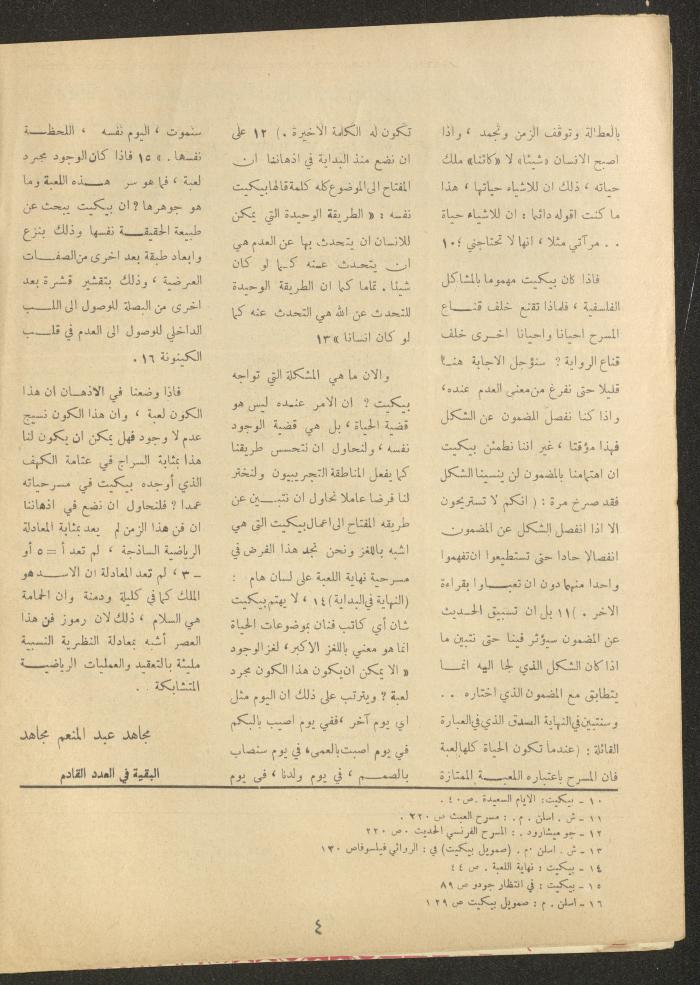 بالعطالة وتوقف الزمن وتجمد ، واذا
اصبح الانسان «شيئا» لا «كائنا» ملك
حياته ، ذلك ان للاشياء حياتها ، هذا
ما كنت اقوله دائما : ان للاشياء حياة
. . مرآتي مثلا ، انها لا تحتاجني ؟١٠
فاذا كان بيكيت مهموما بالمشاكل
الفلسفية ، فلماذا تقنع خلف قنـــاع
المسرح احيانا واحيانا اخـرى خلف
قناع الرواية ? سنؤجل الاجابة هنـا
قليلا حتى نفرغ من معنى العدم عنده،
واذا كنا نفصل المضمون عن الشكل
فهذا مؤقتا ، غير اننا نطمئن بيكيت
ان اهتمامنا بالمضمون لن ينسينا الشكل
فقد صرخ مرة : ( انكم لا تستريحون
الا اذا انفصل الشكل عن المضمون
انفصالا حادا حتى تستطيعوا ان تفهموا
واحدا منهما دون ان تعبــاوا بقراءة
الاخر . )١١ بل ان تسبيق الحـديث
عن المضمون سيؤثر فينا حتى نتبين ما
اذا كان الشكل الذي لجا اليه انمـا
يتطابق مع المضمون الذي اختاره . .
وسنتبين في النهاية الصدق الذي في العبارة
القائلة : (عندما تكون الحياة كلها لعبة
فان المسرح باعتباره اللعبـــة الممتازة
تكون له الكلمة الاخيرة . ) ١٢ على
ان نضع منذ البداية في اذهاننا ان
المفتاح الى الموضوع كله كلمة قالها بيكيت
نفسه : « الطريقة الوحيدة التي يمكن
للانسان ان يتحدث بها عن العدم هي
ان يتحدث عنه كـما لو كان
شيئا . تماما كما ان الطريقة الوحيدة
للتحدث عن الله هي التحدث عنه كما
لو كان انسانا »١٣
والان ما هي المشكلة التي تواجه
بيكيت ? ان الامر عنـده ليس هو
قضية الحياة ، بل هي قضية الوجود
نفسه ، ولنحاول ان نتحسس طريقنا
كما يفعل المناطقة التجريبيون ولنختر
لنا فرضا عاملا نحاول ان نتبـين عن
طريقه المفتاح الى اعمال بيكيت التي هي
اشبه باللغز ونحن نجد هذا الفرض في
مسرحية نهاية اللعبة على لسان هام :
(النهاية في البداية) ١٤ ، لا يهتم بيكيت
شان أي كاتب فنان بموضوعات الحياة
انما هو معني باللغز الاكبر، لغز الوجود
« الا يمكن ان يكون هذا الكون مجرد
لعبة ? ويترتب على ذلك ان اليوم مثل
اي يوم آخر ، ففي يوم اصيب بالبكم
في يوم اصبت بالعمى، في يوم سنصاب
بالصمـــم ، في يوم ولدنا ، في يوم
سنموت ، اليوم نفسه ، اللحظـــة
نفسها . » ١٥ فاذا كان الوجود مجرد
لعبة ، فما هو سر هـــذه اللعبة وما
هو جوهرها ? ان بيكيت يبحث عن
طبيعة الحقيقـــة نفسها وذلك بنزع
وابعاد طبقة بعد اخرى من الصفـات
العرضية ، وذلك بتقشير قشرة بعد
اخرى من البصلة للوصول الى اللــب
الداخلي للوصول الى العدم في قلــب
الكينونة ١٦ .
فاذا وضعنا في الاذهـان ان هذا
الكون لعبة ، وان هذا الكون نسيج
عدم لا وجود فهل يمكن ان يكون لنا
هذا بمثابة السراج في عتامة الكهف
الذي أوجده بيكيت في مسرحياته
عمدا ? فلنحاول ان نضع في اذهاننا
ان فن هذا الزمن لم يعد بمثابة المعادلة
الرياضية الساذجة ، لم تعد أ = ٥ أو
ــ ٣ ، لم تعد المعادلة ان الاســد هو
الملك كما في كليلة ودمنة وان الحمامة
هي السلام ، ذلك لان رموز فن هذا
العصر أشبه بمعادلة النظرية النسبية
مليئة بالتعقيد والعمليات الرياضيـــة
المتشابكة . .
مجاهد عبد المنعم مجاهد
البقية في العدد القادم
١٠ ـ بيكيت : الايام السعيدة . ص ٤٠ .
١١ ـ ش . اسلن . م . : مسرح العبث ص ٢٢٠ .
١٢ ـ جو ميشارود . : المسرح الفرنسي الحديث . ص ٢٢٠
١٣ ـ ش . اسلن . م . (صمويل بيكيت) في : الروائي فيلسوفا ص ١٣٠
١٤ ـ بيكيت : نهاية اللعبة . ص ٤٤
١٥ ـ بيكيت : في انتظار جودو ص ٨٩
١٦ ـ اسلن . م : صمويل بيكيت ص ١٢٩
٤